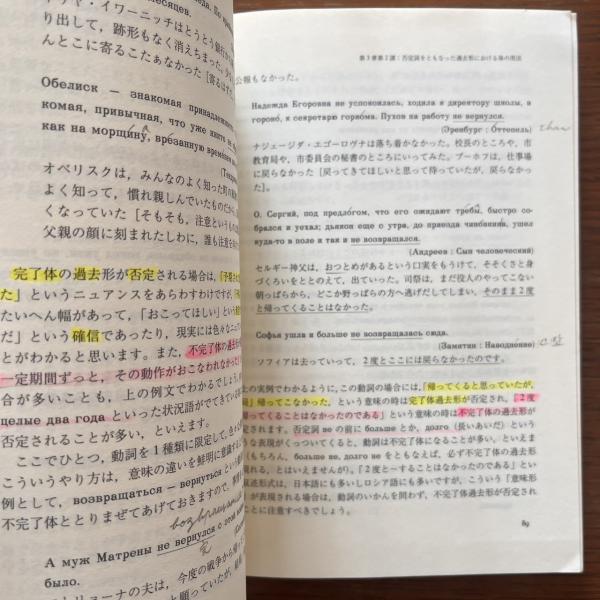 месяцев.
リヤ・イワーニッチはとうとう
り出して，跡形もなく消えちまった。
んとこに寄るこたぁなかった［寄るは
Обелиск — знакомая принадлежн
комая, привычная, что уже никто не
как на морщину, врезанную времен
オベリスクは，みんなのよく知った町の
よく知って，慣れ親しんでいたものだから
くなっていた［そもそも，注意というもの
父親の顔に刻まれたしわに，誰も注意を
完了体の過去形が否定される場合は，「予想
た」というニュアンスをあらわすわけです。
たいへん幅があって，「おこってほしい」という
だ」という確信であったり，現実には色々な
とがわかると思います。また，不完了体の過去形が
一定期間ずっと，その動作がおこなわれなかった
合が多いことも，上の例文でわかるでしょう。
целые два года といった状況語がでてきている
否定されることが多い，といえます。
ここでひとつ，動詞を1種類に限定して，
こういうやり方は，意味の違いを鮮明に意識する
例として，возвращаться — вернуться という
不完了体ととりまぜてあげておきますので，
А муж Матрены не вернулся с
было.
トリョーナの夫は，今度の戦争から帰
と願っていたが，
第3章第2課：否定詞をともなった過去形における体の用法
公報もなかった。
Надежда Егоровна не успокоилась, ходила к директору школы, в
гороно, к секретарю горкома. Пухов на работу не вернулся.
(Эренбург : Оттепель)
ナジェージダ・エゴーロヴナは落ち着かなかった。校長のところや，市
教育局や，市委員会の秘書のところにいってみた。プーホフは，仕事場
に戻らなかった［戻ってきてほしいと思って待っていたが，戻らなかっ
た］。
О. Сергий, под предлогом, что его ожидают требы, быстро со-
брался и уехал; дьякон еще с утра, до приезда чиновников, ушел
куда-то в поле и так и не возвращался.
(Андреев : Сын человеческий)
セルギー神父は，おつとめがあるという口実をもうけて，そそくさと身
づくろいをととのえて，出ていった。司祭は，まだ役人のやってこない
朝っぱらから，どこか野っぱらの方へ逃げだしてしまい，そのまま2度
と帰ってくることはなかった。
Софья ушла и больше не возвращалась сюда.
(Замятин : Наводнение)
ソフィアは去っていって，2度とここには戻らなかったのです。
上の実例でわかるように，この動詞の場合には，「帰ってくると思っていたが，
帰ってこなかった」という意味の時は完了体過去形が否定され，「2度
帰ってくることはなかったのである」という意味の時は不完了体の過去形が
されます。否定詞 не の前に больше とか，долго（長いあいだ）という
な表現がくっついてくると，動詞は不完了体になることが多い，といえま
もちろん，больше не, долго не をともなえば，必ず不完了体の過去形が
れる，とはいえませんが）。「2度と～することはなかったのである」とい
述形式は，日本語にも多いしロシア語にも多いですが，こういう「意味形
が表現される場合は，動詞のいかんを問わず，不完了体過去形が否定され
注意すべきでしょう。
89